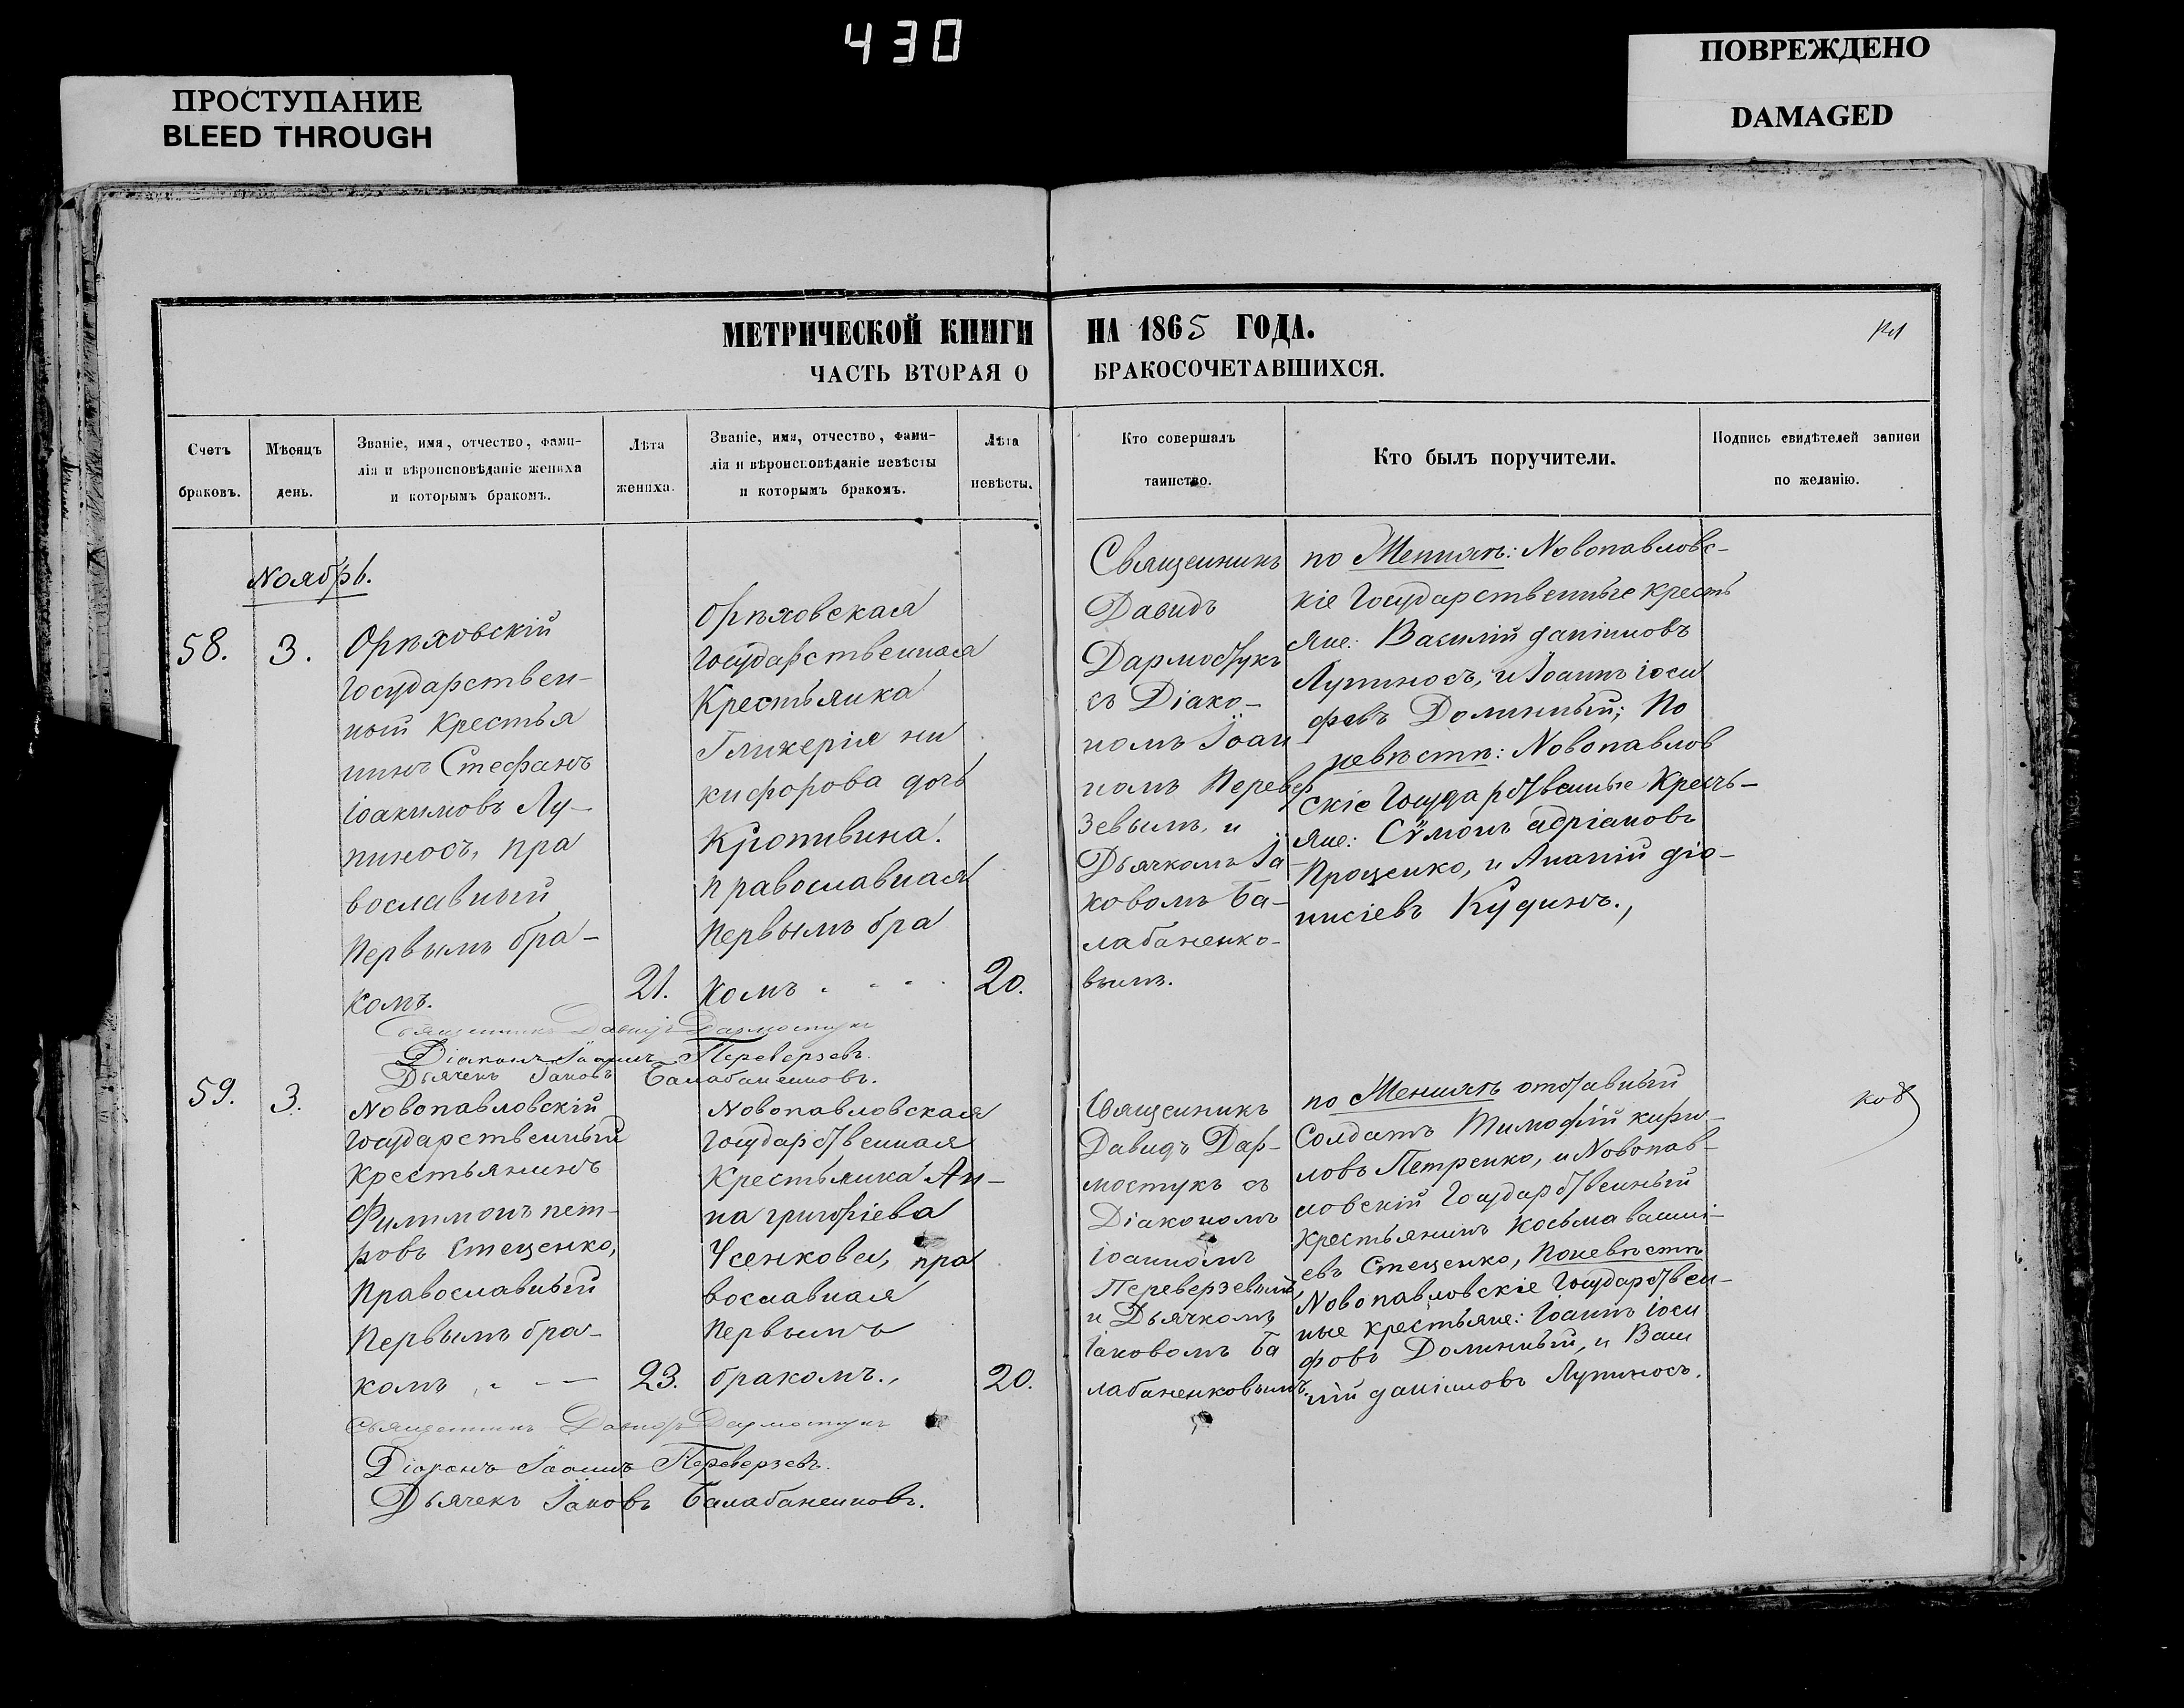 430
ПРОСТУПАНИЕ
BLEED THROUGH
ПОВРЕЖДЕНО
DAMAGED
МЕТРИЧЕСКОЙ КНИГИ НА 1865 ГОДА.
ЧАСТЬ ВТОРАЯ О БРАКОСОЧЕТАВШИХСЯ.
Счетъ
браковъ.
Мѣсяцъ
день.
Званіе, имя, отчество, фами-
лія и вѣроисповѣданіе жениха
и которымъ бракомъ.
Лѣта
жениха.
Званіе, имя, отчество, фами-
лія и вѣроисповѣданіе невѣсты
и которымъ бракомъ.
Лѣта
невѣсты.
Кто совершалъ
таинство.
Кто былъ поручители.
Подпись свидѣтелей записи
по желанію.
Ноябрь.
58.
3.
Орѣховскій
Государствен-
ной Крестья
нинъ Стефанъ
Іоакимовъ Лу-
пиносъ, пра
вославный
Первымъ бра-
комъ.
21.
Орѣховская
Государственная
Крестьянка
Гликерія ни
кифорова дочь
Кропивина.
православная
Первымъ бра
комъ
20.
Священникъ
Давидъ
Дармостукъ
съ Діако-
номъ Іоан
номъ Перевер
зевымъ, и
Дьячкомъ Іа-
ковомъ Ба-
лабаненко-
вымъ.
по Женихѣ: Новопавловс-
кіе Государственные кресть
яне: Василій даніиловъ
Лупиносъ, и Іоаннъ іоси
фовъ Долинный; По
невѣстѣ: Новопавлов
скіе Государственные Кресть-
яне: Сѵмонъ адріановъ
Проценко, и Ананій діо-
нисіевъ Кудинъ.,
Священникъ Давидъ Дармостукъ
Діаконъ Іоаннъ Переверзевъ.
Дьячекъ Іаковъ Балабаненковъ.
59.
3.
Новопавловскій
Государственный
Крестьянинъ
Филимонъ пет-
ровъ Стеценко,
Православный
Первымъ бра-
комъ
23.
Новопавловская
Государственная
Крестьянка Ан-
на григоріева
Усенкова, пра
вославная
Первымъ
бракомъ.,
20.
Священникъ
Давидъ Дар-
мостукъ съ
Діакономъ
Іоанномъ
Переверзевымъ
и Дьячкомъ
Іаковомъ Ба
лабаненковымъ.
по Женихѣ отставный
Солдатъ Тимофій кири-
ловъ Петренко, и Новопав-
ловскій Государственный
крестьянинъ Косьма васили-
евъ Стеценко, Поневѣстѣ
Новопавловскіе Государствен-
ные крестьяне: Іоаннъ іоси
фовъ Долинный, и Васи
лій даніиловъ Лупиносъ.
Священникъ Давидъ Дармостукъ
Діаконъ Іоаннъ Переверзевъ.
Дьячекъ Іаковъ Балабаненковъ.